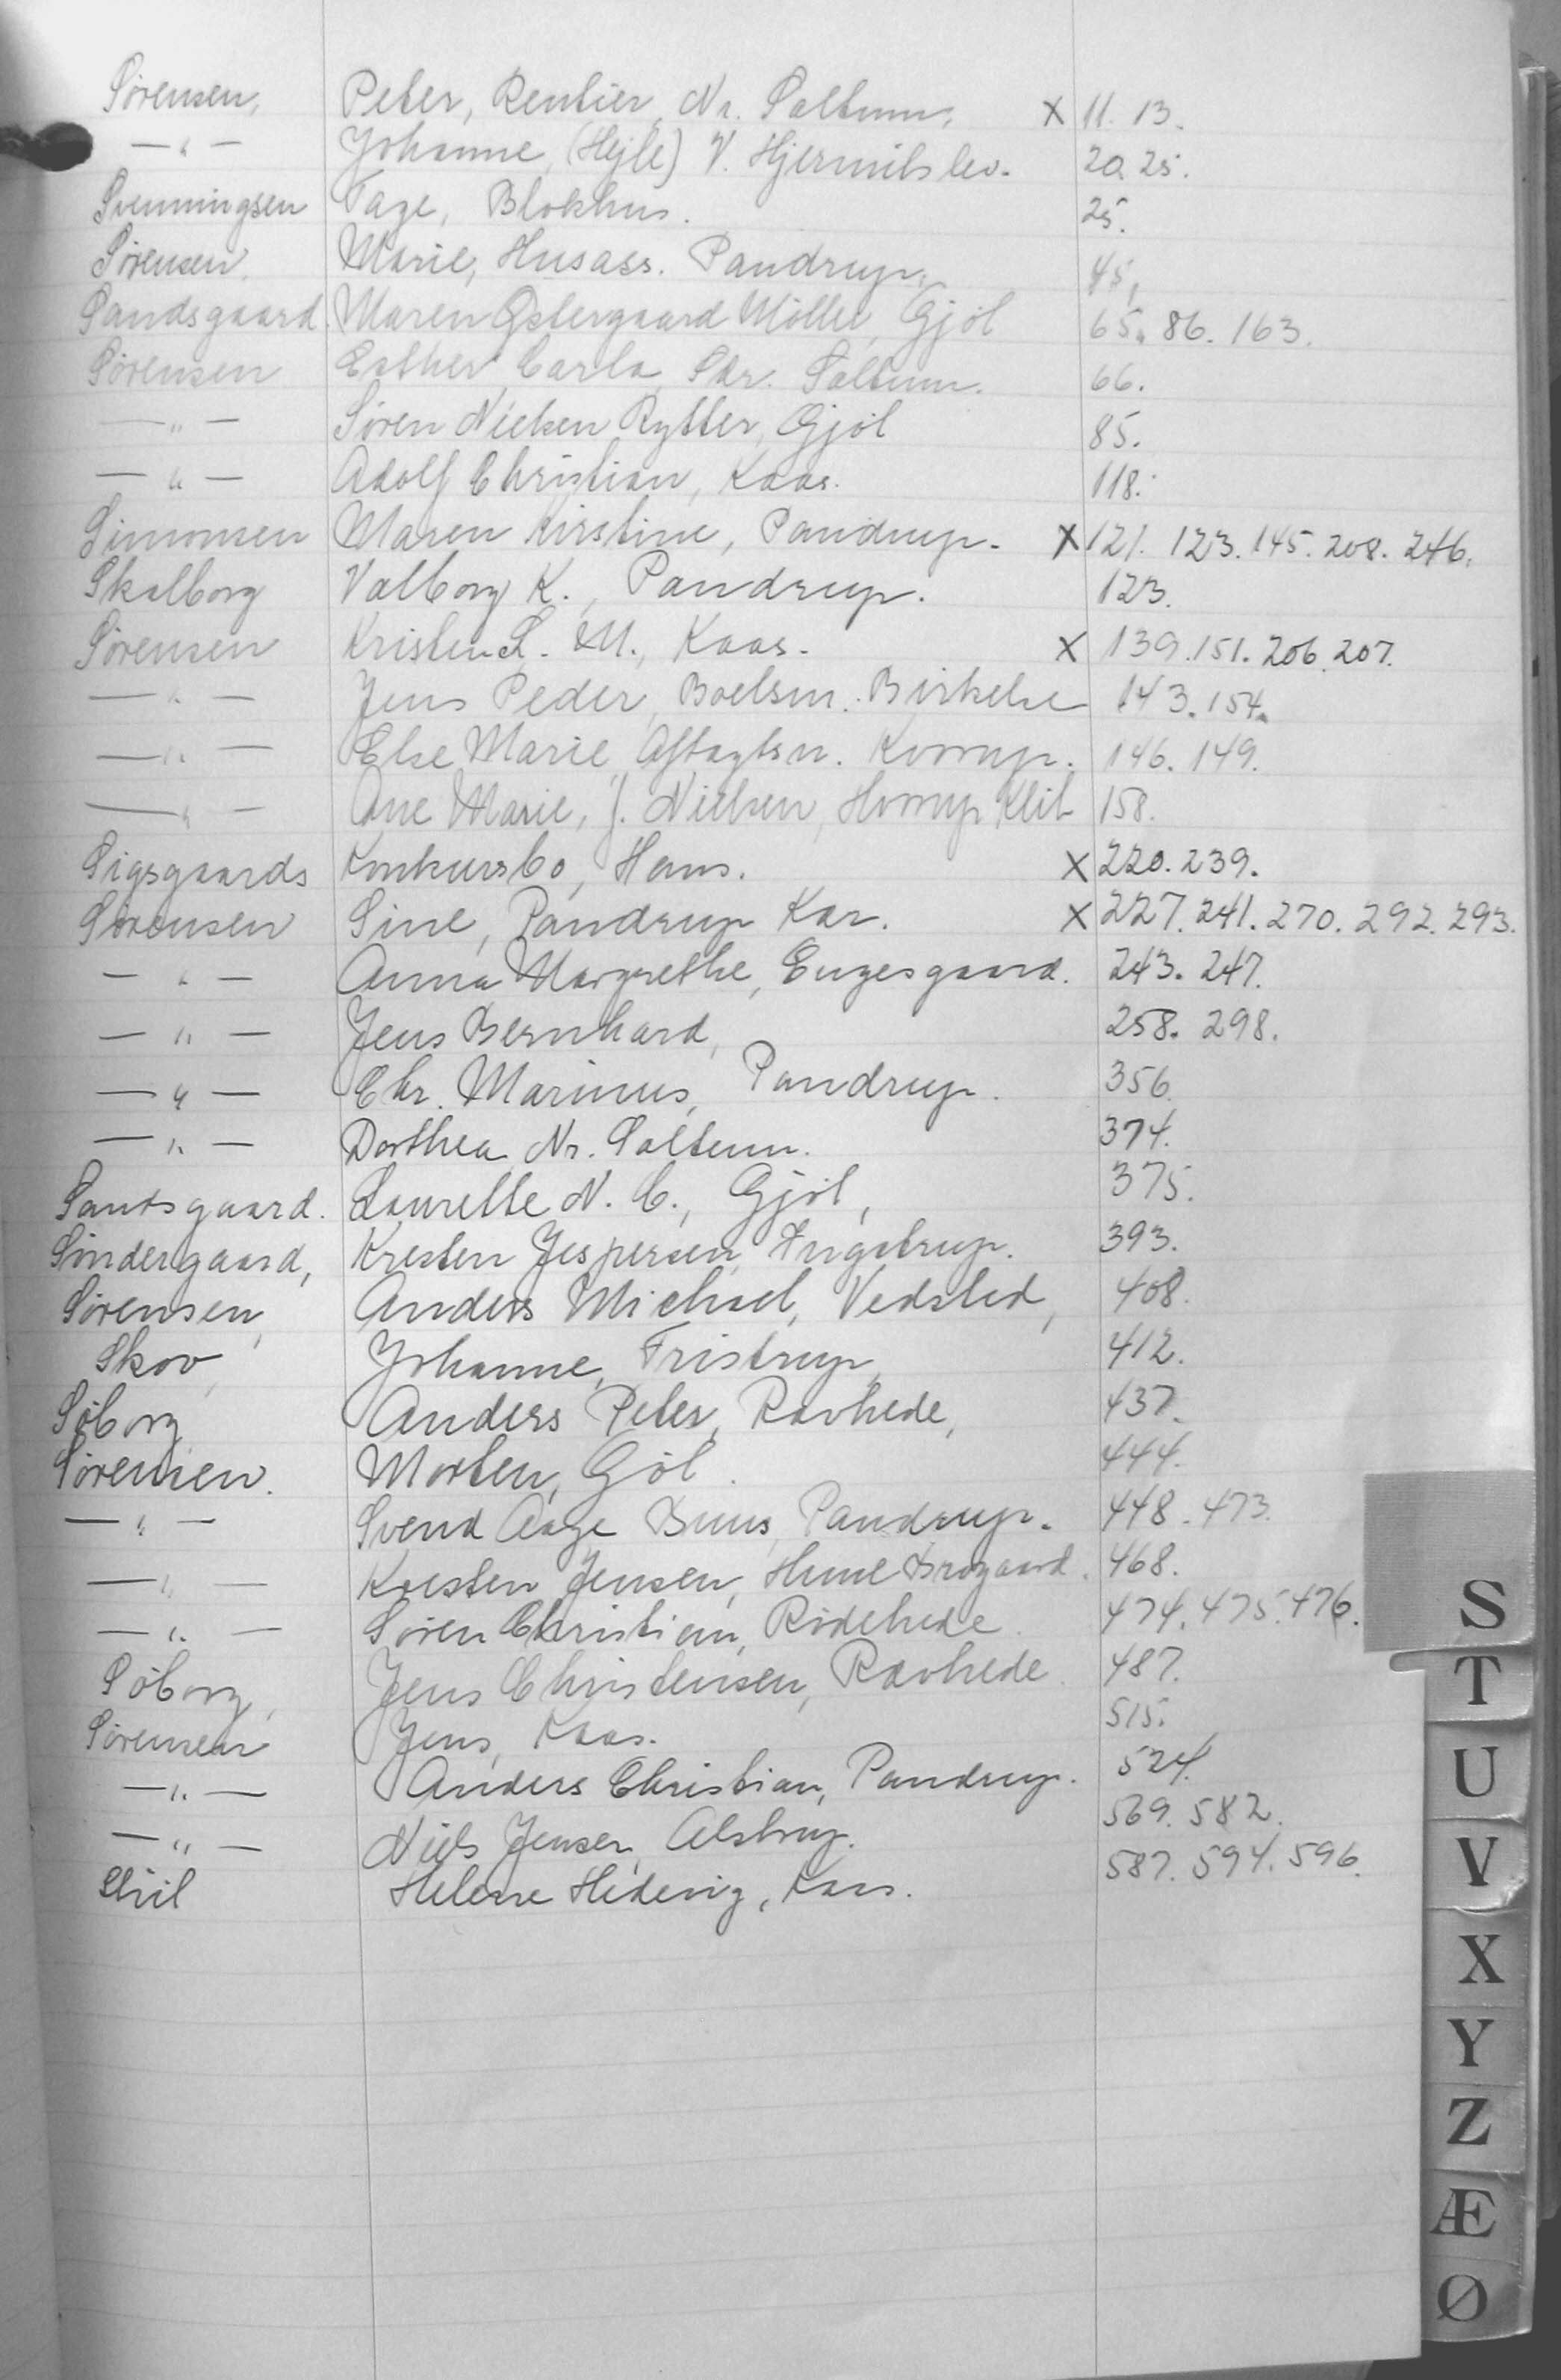 Sörensen, Peter, Rentier, Nr. Saltum. X 11. 13.
— " — Johanne (Hejle) V. Hjermitslev. 20. 25.
Svenningsen Tage, Blokhus. 25.
Sörensen, Marie, Husass. Pandrup. 45,
Sandsgaard. Maren Östergaard Möller, Gjöl 65. 86. 163.
Sörensen Esther Carla, Skr. Saltum. 66.
— " — Sören Nielsen Rytter, Gjöl 85.
— " — Adolf Christian, Kaas. 118.
Simonsen Maren Kirstine, Pandrup. X 121. 123. 145. 208. 246.
Skalborg Valborg K., Pandrup. 123.
Sörensen Kristen L. M., Kaas. X 139. 151. 206. 207.
— " — Jens Peder, Boelsm. Birkelse 143. 154.
— " — Else Marie, Aftægtsn. Korrup. 146. 149.
— " — Ane Marie, f. Nielsen, Horrup Klit 158.
Sigsgaards Konkursbo, Hans. X 220. 239.
Sörensen Sine, Pandrup Kær. X 227. 241. 270. 292. 293.
— " — Anna Margrethe, Engesgaard. 243. 247.
— " — Jens Bernhard, 258. 298.
— " — Chr. Marinus, Pandrup. 356.
— " — Dorthea, Nr. Saltum. 374.
Sandsgaard. Laurette N. C., Gjöl, 375.
Söndergaard, Kresten Jespersen, Ingstrup. 393.
Sörensen, Anders Michael, Vedsted, 408.
Skov, Johanne, Tristrup, 412.
Söborg Anders Peter, Ravhede, 437.
Sörensen. Morten, Göl. 444.
— " — Svend Aage Buus, Pandrup. 448. 473.
— " — Kresten Jensen, Hune 468.
— " — Sören Christian, Rödehede. 474. 475. 476.
Söborg, Jens Christensen, Ravhede 487.
Sörensen Jens, Kaas. 515.
— " — Anders Christian, Pandrup. 524.
— " — Niels Jensen, Alstrup. 569. 582.
Helene Hedevig, Kaas. 587. 594. 596.
S
T
U
V
X
Y
Z
Æ
Ø